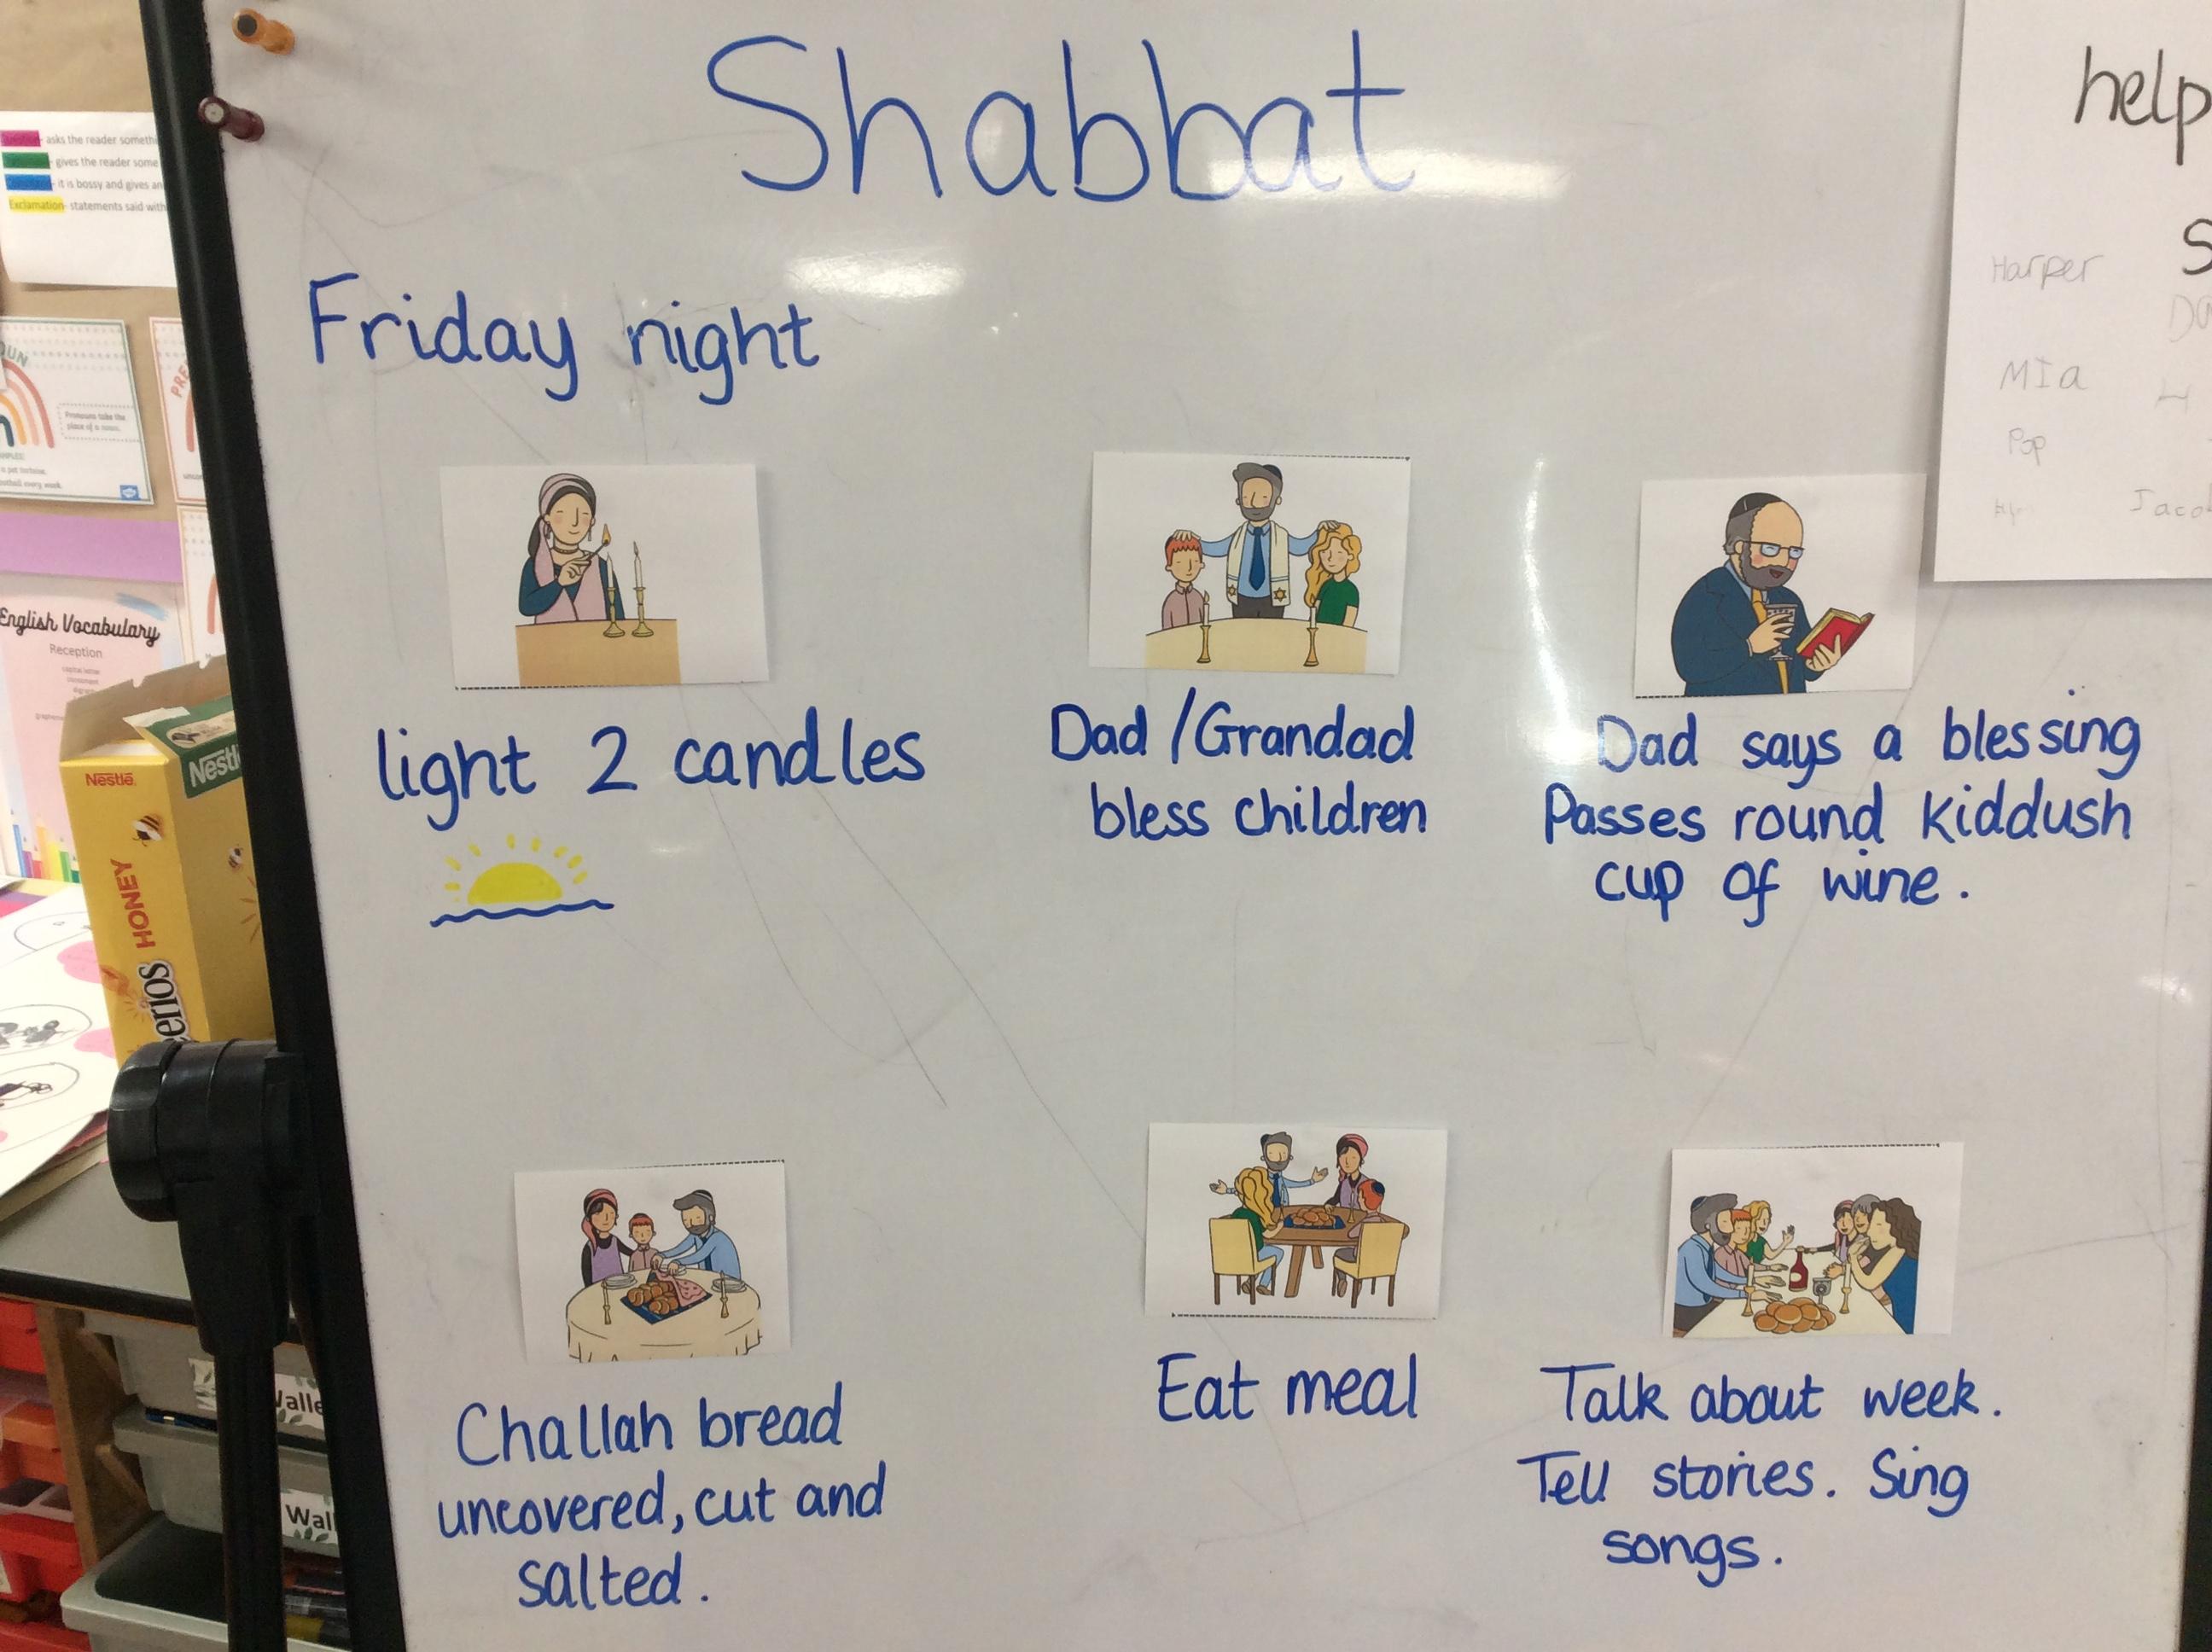 Shabbat
Friday night
light 2 candles
Dad/Grandad
bless children
Dad says a blessing
Passes round Kiddush
cup of wine.
Challah bread
uncovered, cut and
salted.
Eat meal
Talk about week.
Tell stories. Sing
songs.
help
S
Harper
MIa
Pop
H
Jaco
asks the reader someth
gives the reader some
it is bossy and gives an
Exclamation- statements said with
OUN
PRE
Pronouns take the
place of a noun.
a pet tortoise.
ootball every week.
English Vocabulary
Reception
capital letter
Nestlé
Nestl
HONEY
erios
Walle
Wall